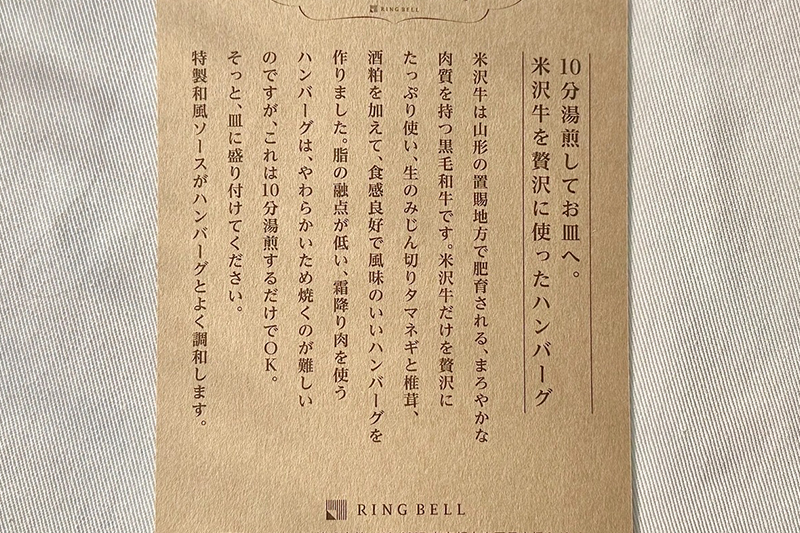 RING BELL
10分湯煎してお皿へ。
米沢牛を贅沢に使ったハンバーグ
米沢牛は山形の置賜地方で肥育される、まろやかな
肉質を持つ黒毛和牛です。米沢牛だけを贅沢に
たっぷり使い、生のみじん切りタマネギと椎茸、
酒粕を加えて、食感良好で風味のいいハンバーグを
作りました。脂の融点が低い、霜降り肉を使う
ハンバーグは、やわらかいため焼くのが難しい
のですが、これは10分湯煎するだけでOK。
そっと、皿に盛り付けてください。
特製和風ソースがハンバーグとよく調和します。
RING BELL